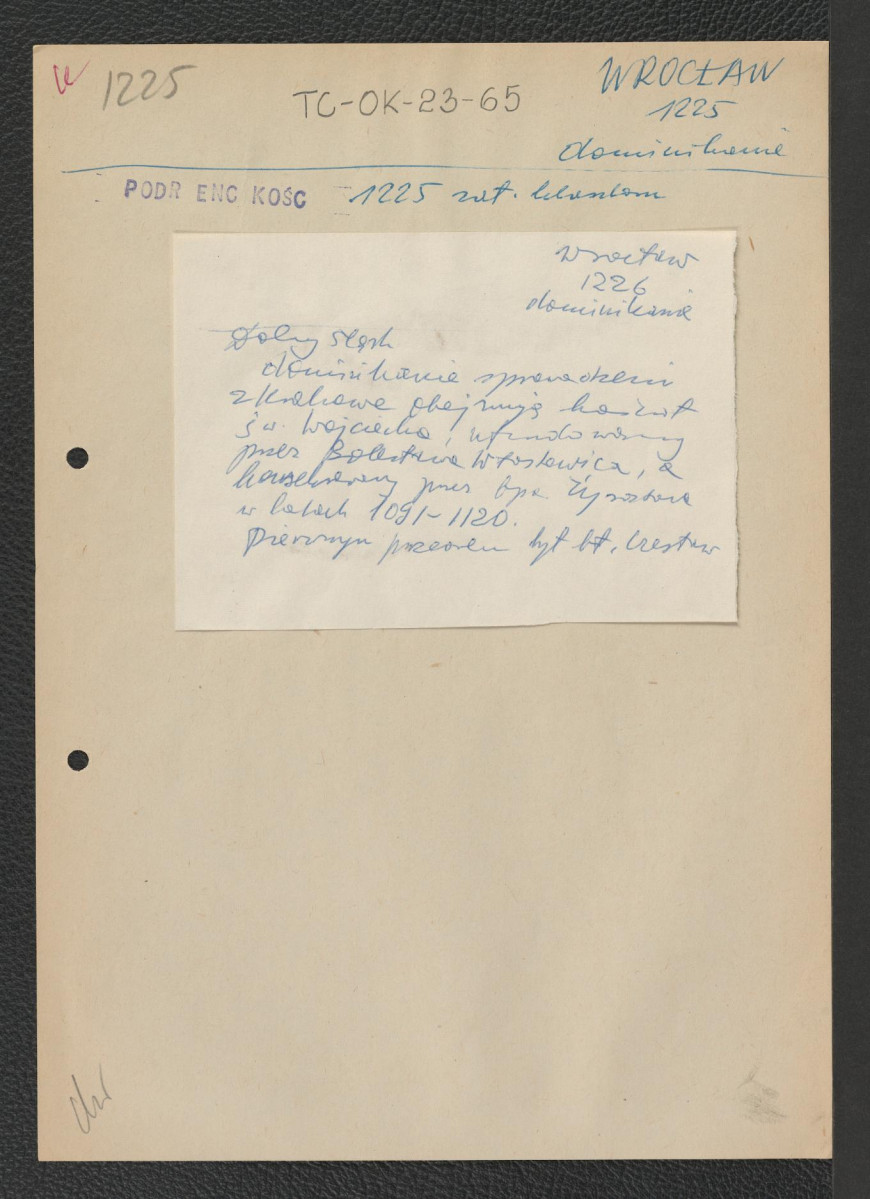 1225
TC-OK-23-65
WROCŁAW
1225
dominikanie
PODR ENC KOŚC
1225 zał. klasztoru
Wrocław
1226
dominikanie
Dolny Śląsk
dominikanie sprowadzeni
z Krakowa obejmują kościół
św. Wojciecha, ufundowany
przez Bolesława Włostowica, a
konsekrowany przez bpa Żyrosława
w latach 1091-1120.
Pierwszym przeorem był bł. Czesław